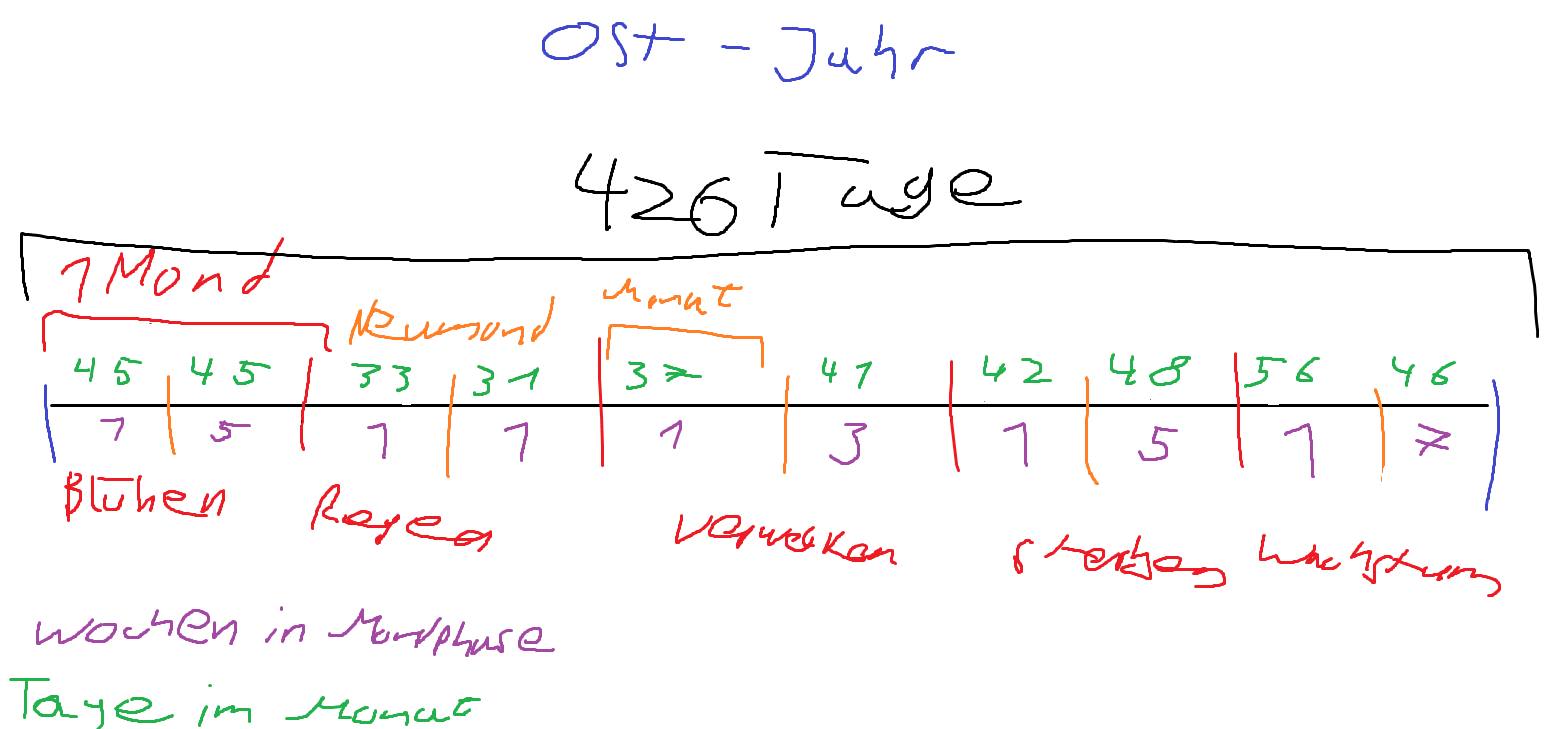 Ost - Jahr
426 Tage
1 Mond
Neumond
Monat
45 45 33 31 37 41 42 48 56 46
1 5 1 1 1 3 1 5 1 7
Blühen Regen Verwelken Sterben Wachstum
Wochen in Mondphase
Tage im Monat